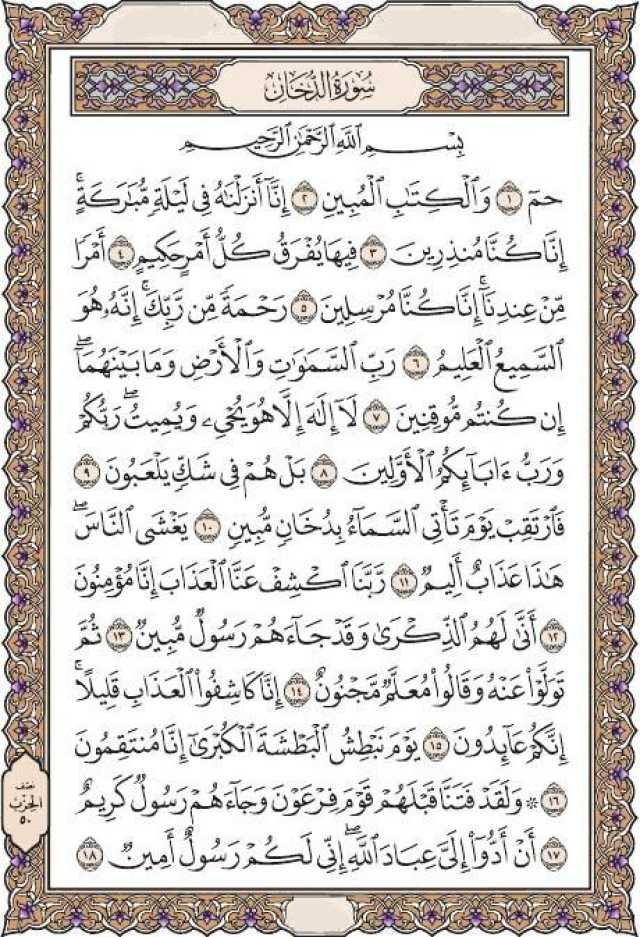 سُورَةُ الدُّخَانِ
بِسْمِ اللَّهِ الرَّحْمَٰنِ الرَّحِيمِ
حمٓ ١ وَٱلْكِتَٰبِ ٱلْمُبِينِ ٢ إِنَّآ أَنزَلْنَٰهُ فِى لَيْلَةٍ مُّبَٰرَكَةٍ ۚ
إِنَّا كُنَّا مُنذِرِينَ ٣ فِيهَا يُفْرَقُ كُلُّ أَمْرٍ حَكِيمٍ ٤ أَمْرًا
مِّنْ عِندِنَآ ۚ إِنَّا كُنَّا مُرْسِلِينَ ٥ رَحْمَةً مِّن رَّبِّكَ ۚ إِنَّهُۥ هُوَ
ٱلسَّمِيعُ ٱلْعَلِيمُ ٦ رَبِّ ٱلسَّمَٰوَٰتِ وَٱلْأَرْضِ وَمَا بَيْنَهُمَآ ۖ
إِن كُنتُم مُّوقِنِينَ ٧ لَآ إِلَٰهَ إِلَّا هُوَ يُحْىِۦ وَيُمِيتُ ۖ رَبُّكُمْ
وَرَبُّ ءَابَآئِكُمُ ٱلْأَوَّلِينَ ٨ بَلْ هُمْ فِى شَكٍّ يَلْعَبُونَ ٩
فَٱرْتَقِبْ يَوْمَ تَأْتِى ٱلسَّمَآءُ بِدُخَانٍ مُّبِينٍ ١٠ يَغْشَى ٱلنَّاسَ ۖ
هَٰذَا عَذَابٌ أَلِيمٌ ١١ رَّبَّنَا ٱكْشِفْ عَنَّا ٱلْعَذَابَ إِنَّا مُؤْمِنُونَ
١٢ أَنَّىٰ لَهُمُ ٱلذِّكْرَىٰ وَقَدْ جَآءَهُمْ رَسُولٌ مُّبِينٌ ١٣ ثُمَّ
تَوَلَّوْا۟ عَنْهُ وَقَالُوا۟ مُعَلَّمٌ مَّجْنُونٌ ١٤ إِنَّا كَاشِفُوا۟ ٱلْعَذَابِ قَلِيلًا ۚ
إِنَّكُمْ عَآئِدُونَ ١٥ يَوْمَ نَبْطِشُ ٱلْبَطْشَةَ ٱلْكُبْرَىٰٓ إِنَّا مُنتَقِمُونَ
١٦ ۞ وَلَقَدْ فَتَنَّا قَبْلَهُمْ قَوْمَ فِرْعَوْنَ وَجَآءَهُمْ رَسُولٌ كَرِيمٌ
١٧ أَنْ أَدُّوٓا۟ إِلَىَّ عِبَادَ ٱللَّهِ ۖ إِنِّى لَكُمْ رَسُولٌ أَمِينٌ ١٨
نصف
الحزب
٥٠